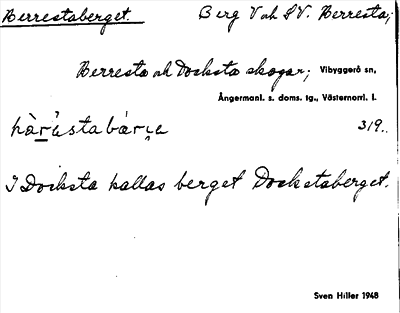 Herrestaberget. Berg V och SV. Herresta,
Herresta och Docksta skogar; Vibyggerå sn,
Ångermanl. s. doms. tg., Västernorrl. l.
319.
I Docksta kallas berget Dockstaberget.
Sven Hiller 1948